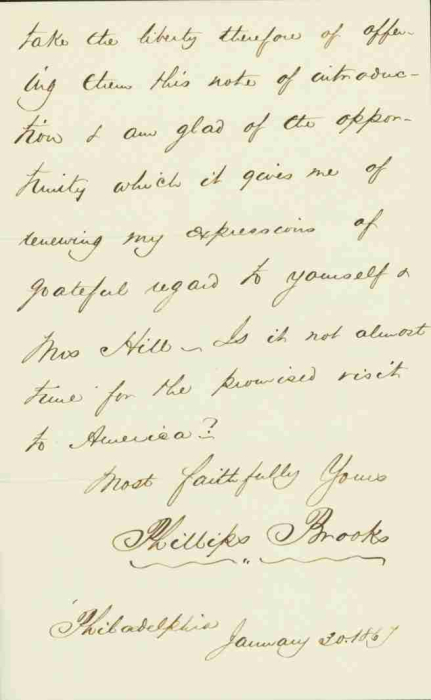 take the liberty therefore of offer-
ing them this note of introduc-
tion & am glad of the oppor-
tunity which it gives me of
renewing my expressions of
grateful regard to yourself &
Mrs Hill – Is it not almost
time for the promised visit
to America?
Most faithfully Yours
Phillips Brooks
Philadelphia
January 20. 1867